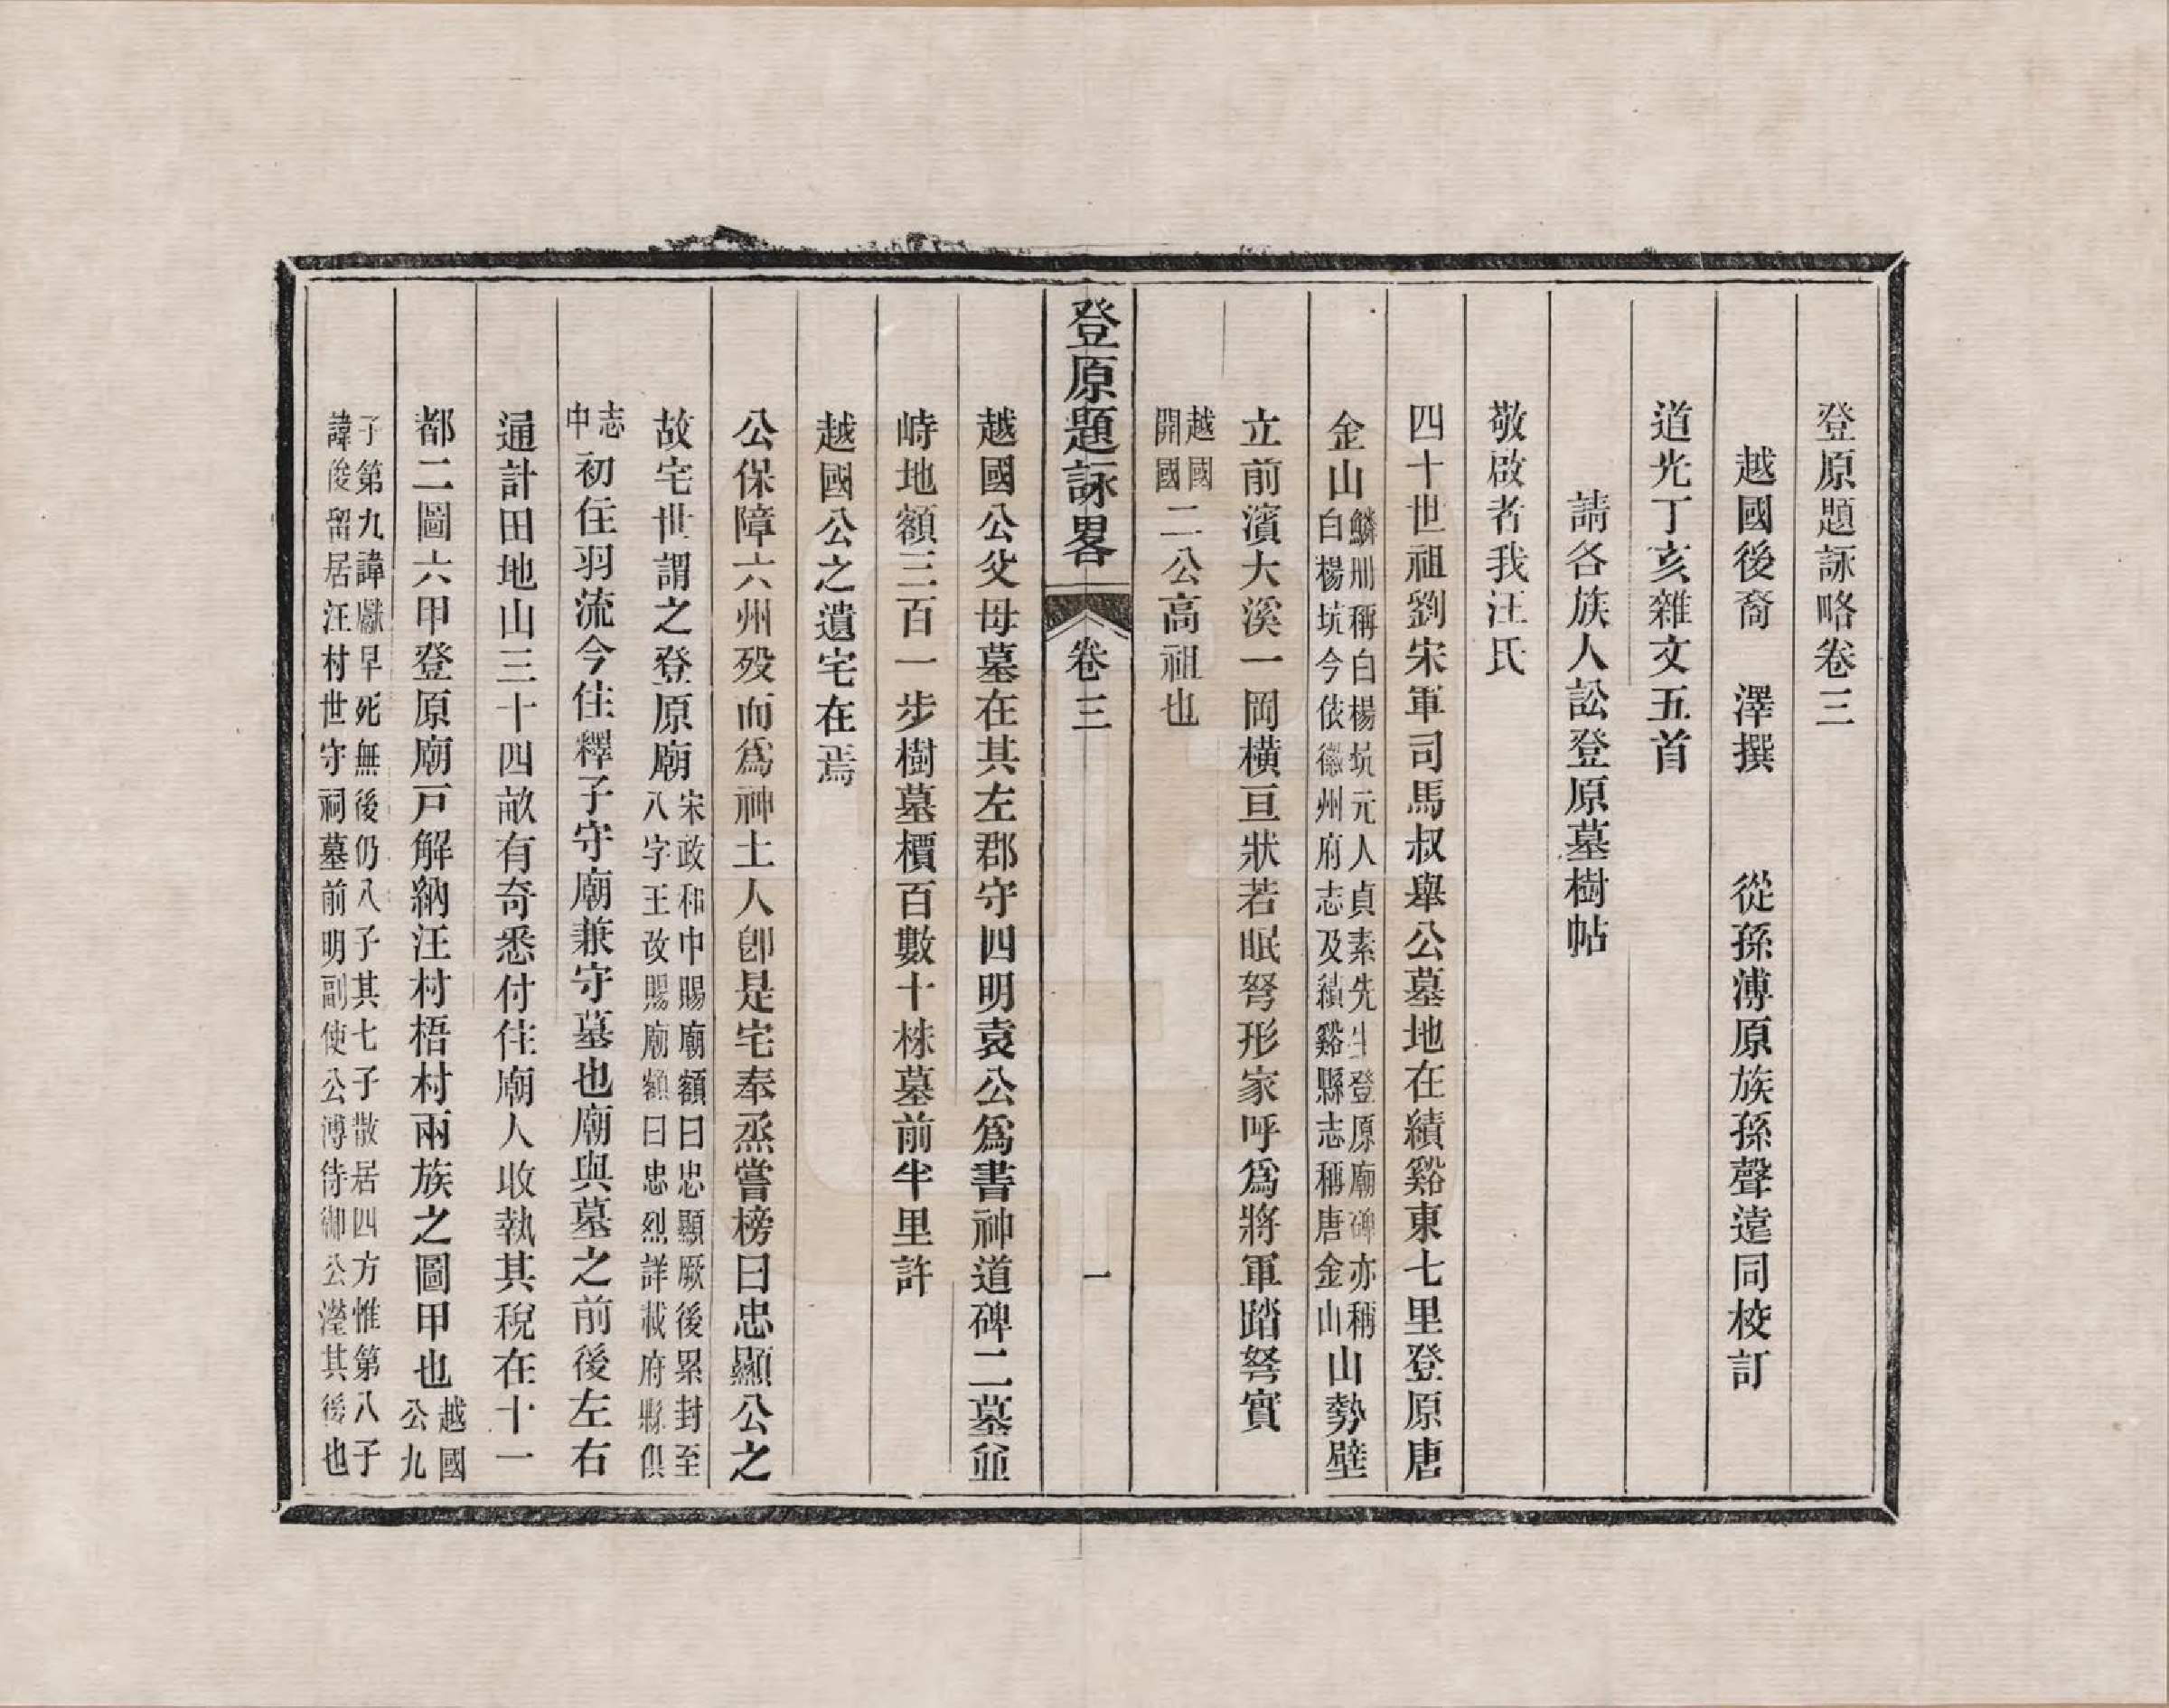 登原題詠略卷三
越國後裔　澤撰　從孫溥原族孫聲遠同校訂
道光丁亥雜文五首
請各族人訟登原墓樹帖
敬啟者我汪氏
四十世祖劉宋軍司馬叔舉公墓地在績谿東七里登原唐
金山
鱗冊稱白楊坑元人貞素先生登原廟碑亦稱
白楊坑今依徽州府志及績谿縣志稱唐金山
山勢壁
立前濱大溪一岡橫亘狀若眠弩形家呼爲將軍踏弩實
越國
開國
二公高祖也
登原題詠畧
卷三
一
越國公父母墓在其左郡守四明袁公爲書神道碑二墓並
峙地額三百一步樹墓檟百數十株墓前半里許
越國公之遺宅在焉
公保障六州歿而爲神土人卽是宅奉烝嘗榜曰忠顯公之
故宅世謂之登原廟
宋政和中賜廟額曰忠顯厥後累封至
八字王改賜廟額曰忠烈詳載府縣俱
志
中
初住羽流今住釋子守廟兼守墓也廟與墓之前後左右
通計田地山三十四畝有奇悉付住廟人收執其稅在十一
都二圖六甲登原廟戸解納汪村梧村兩族之圖甲也
越國
公九
子第九諱獻早死無後仍八子其七子散居四方惟第八子
諱俊留居汪村世守祠墓前明副使公溥待御公瀅其後也